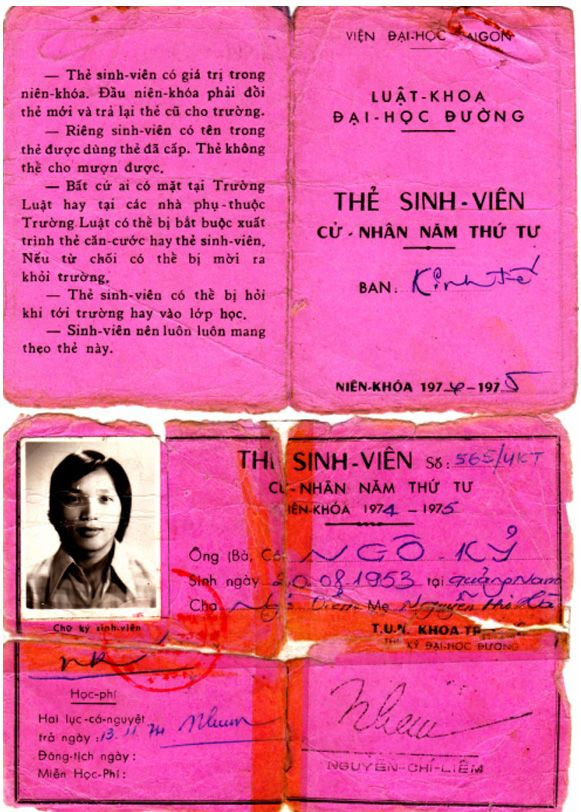 — Thẻ sinh-viên có giá trị trong
niên-khóa. Đầu niên-khóa phải đổi
thẻ mới và trả lại thẻ cũ cho trường.
— Riêng sinh-viên có tên trong
thẻ được dùng thẻ đã cấp. Thẻ không
thể cho mượn được.
— Bất cứ ai có mặt tại Trường
Luật hay tại các nhà phụ-thuộc
Trường Luật có thể bị bắt buộc xuất
trình thẻ căn-cước hay thẻ sinh-viên.
Nếu từ chối có thể bị mời ra
khỏi trường.
— Thẻ sinh-viên có thể bị hỏi
khi tới trường hay vào lớp học.
— Sinh-viên nên luôn luôn mang
theo thẻ này.
VIỆN ĐẠI-HỌC SAIGON
LUẬT-KHOA
ĐẠI-HỌC ĐƯỜNG
THẺ SINH-VIÊN
CỬ-NHÂN NĂM THỨ TƯ
BAN: Kinh tế
NIÊN-KHÓA 1974-1975
THẺ SINH-VIÊN Số: 565/4KT
CỬ-NHÂN NĂM THỨ TƯ
NIÊN-KHÓA 1974 - 1975
Ông (Bà, Cô) NGÔ - KỶ
Sinh ngày 20.08.1953 tại Quảng Nam
Cha Ngô Diêm Mẹ Nguyễn Thị
T.U.N. KHOA TR
THƯ KÝ ĐẠI-HỌC ĐƯỜNG
Chữ ký sinh-viên
NK
Học-phí
Hai lục-cá-nguyệt
trả ngày: 13.11.74
Đáng-tịch ngày:
Miễn Học-Phí:
NGUYỄN-CHÍ-LIÊM